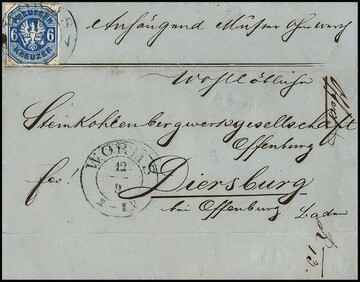 PREUSSEN
6 6
KREUZER
Anhängend Muster ohne Werth
Wohllöbliche
Steinkohlenbergwerksgesellschaft
Offenburg
WORBIS
12
9
fco! Diersburg
bei Offenburg
Baden